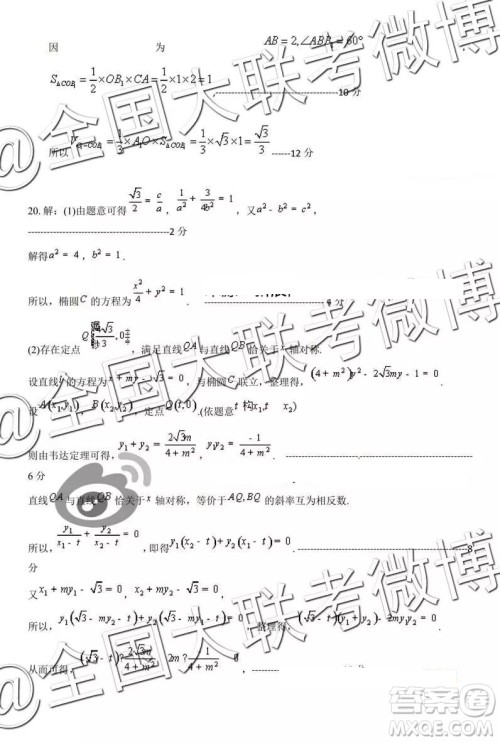 因 为 AB=2,∠ABB₁=60°
S△COB₁=1/2×OB₁×CA=1/2×1×2=1
--------------------------10 分
所以 =1/3×A₁O×S△COB₁=1/3×√3×1=√3/3 ------12 分
20.解：(1)由题意可得 √3/2=c/a，1/a²+3/4b²=1，又a²-b²=c²，
--------------------------------2 分
解得a²=4，b²=1.
所以，椭圆C的方程为x²/4+y²=1
(2)存在定点 Q ，满足直线QA与直线QB恰关于x轴对称.
设直线 的方程为x+my-√3=0，与椭圆C联立，整理得，(4+m²)y²-2√3my-1=0.
设A(x₁,y₁)，B(x₂,y₂)，定点Q(t,0).(依题意 t x₁,t x₂)
则由韦达定理可得，y₁+y₂=2√3m/4+m²，y₁y₂=-1/4+m².
6 分
直线QA与直线QB恰关于x轴对称，等价于AQ,BQ的斜率互为相反数.
所以，y₁/x₁-t+y₂/x₂-t=0，即得y₁(x₂-t)+y₂(x₁-t)=0. ------------------8
分
又x₁+my₁-√3=0，x₂+my₂-√3=0，
所以，y₁(√3-my₂-t)+y₂(√3-my₁-t)=0，整理得，(√3-t)(y₁+y₂)-2my₁y₂=0.
从而可得，(√3-t)?2√3m/4+m² 2m?-1/4+m² 0，
@全国大联考微博
答案圈
MXQE.COM